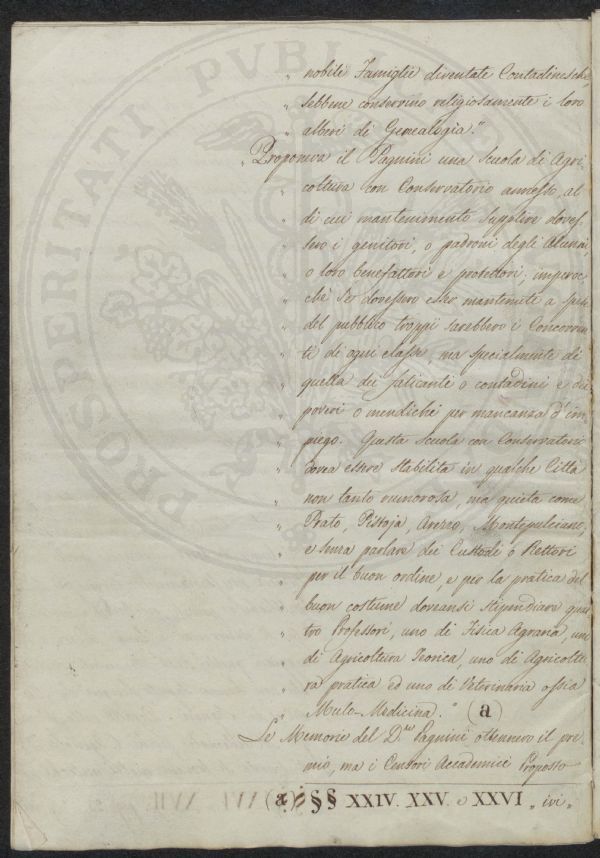 „ nobili Famiglie diventate Contadinesche,
„ sebbene conservino religiosamente i loro
„ alberi di Genealogia."
„ Proponeva il Pagnini una Scuola di Agri-
„ coltura con Conservatorio annesso, al
„ di cui mantenimento supplire doves-
„ sero i genitori, o padroni degli Alunni,
„ o loro benefattori e protettori; imperoc-
„ chè se dovessero esser mantenuti a spese
„ del pubblico troppi sarebbero i Concorren-
„ ti di ogni classe, ma specialmente di
„ quella dei faticanti o contadini e dei
„ poveri o mendichi per mancanza d'im-
„ piego. Questa Scuola con Conservatorio
„ dovea essere stabilita in qualche Città
„ non tanto rumorosa, ma quieta come
„ Prato, Pistoja, Arezzo, Montepulciano,
„ e senza parlare dei Custodi o Rettori
„ per il buon ordine, e per la pratica del
„ buon costume doveansi stipendiare quat-
„ tro Professori, uno di Fisica Agraria, uno
„ di Agricoltura Teorica, uno di Agricoltu-
„ ra pratica ed uno di Veterinaria ossia
„ Mulo-Medicina." (a)
Le Memorie del Dtor Pagnini ottennero il pre-
mio, ma i Censori Accademici Proposto
(a) §§ XXIV. XXV. e XXVI „ ivi „
PROSPERITATI PVBLICAE